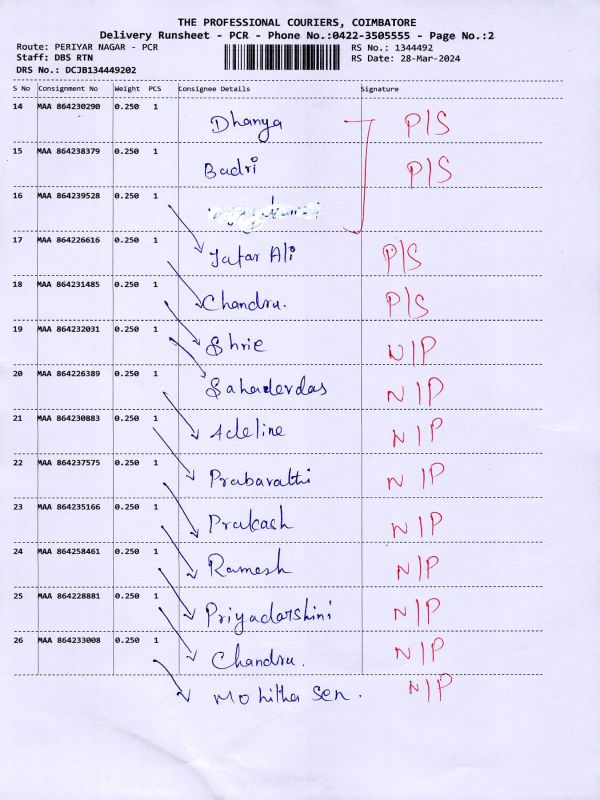 THE PROFESSIONAL COURIERS, COIMBATORE
Delivery Runsheet - PCR - Phone No.:0422-3505555 - Page No.:2
Route: PERIYAR NAGAR - PCR
RS No.: 1344492
Staff: DBS RTN
RS Date: 28-Mar-2024
DRS No.: DCJB134449202
S No Consignment No Weight PCS Consignee Details Signature
14 MAA 864230290 0.250 1
Dhanya P/S
15 MAA 864238379 0.250 1
Badri P/S
16 MAA 864239528 0.250 1
17 MAA 864226616 0.250 1
Jafar Ali P/S
18 MAA 864231485 0.250 1
Chandru. P/S
19 MAA 864232031 0.250 1
Shrie N/P
20 MAA 864226389 0.250 1
Sahadevdas N/P
21 MAA 864230883 0.250 1
Adeline N/P
22 MAA 864237575 0.250 1
Prabavathi N/P
23 MAA 864235166 0.250 1
Prakash N/P
24 MAA 864258461 0.250 1
Ramesh N/P
25 MAA 864228881 0.250 1
Priyadarshini N/P
26 MAA 864233008 0.250 1
Chandru. N/P
Mohitha Sen. N/P